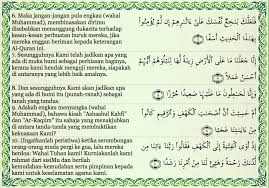 6. Maka jangan-jangan pula engkau (wahai
Muhammad), membinasakan dirimu
disebabkan menanggung dukacita terhadap
kesan-kesan perbuatan buruk mereka, jika
mereka enggan beriman kepada keterangan
Al-Quran ini.
7. Sesungguhnya Kami telah jadikan apa yang
ada di muka bumi sebagai perhiasan baginya,
kerana kami hendak menguji mereka, siapakah
di antaranya yang lebih baik amalnya.
8. Dan sesungguhnya Kami akan jadikan apa
yang ada di bumi itu (punah-ranah) sebagai
tanah yang tandus.
9. Adakah engkau menyangka (wahai
Muhammad), bahawa kisah "Ashaabul Kahfi"
dan "Ar-Raqiim" itu sahaja yang menakjubkan
di antara tanda-tanda yang membuktikan
kekuasaan Kami?
10. (Ingatkanlah peristiwa) ketika serombongan
orang-orang muda pergi ke gua, lalu mereka
berdoa: Wahai Tuhan kami! Kurniakanlah kami
rahmat dari sisiMu dan berilah
kemudahan-kemudahan serta pimpinan kepada
kami untuk keselamatan agama kami.
فَلَعَلَّكَ بَٰخِعٌ نَّفْسَكَ عَلَىٰٓ ءَاثَٰرِهِمْ إِن لَّمْ يُؤْمِنُوا۟
بِهَٰذَا ٱلْحَدِيثِ أَسَفًا
إِنَّا جَعَلْنَا مَا عَلَى ٱلْأَرْضِ زِينَةً لَّهَا لِنَبْلُوَهُمْ أَيُّهُمْ
أَحْسَنُ عَمَلًا
وَإِنَّا لَجَٰعِلُونَ مَا عَلَيْهَا صَعِيدًا جُرُزًا
أَمْ حَسِبْتَ أَنَّ أَصْحَٰبَ ٱلْكَهْفِ وَٱلرَّقِيمِ كَانُوا۟
مِنْ ءَايَٰتِنَا عَجَبًا